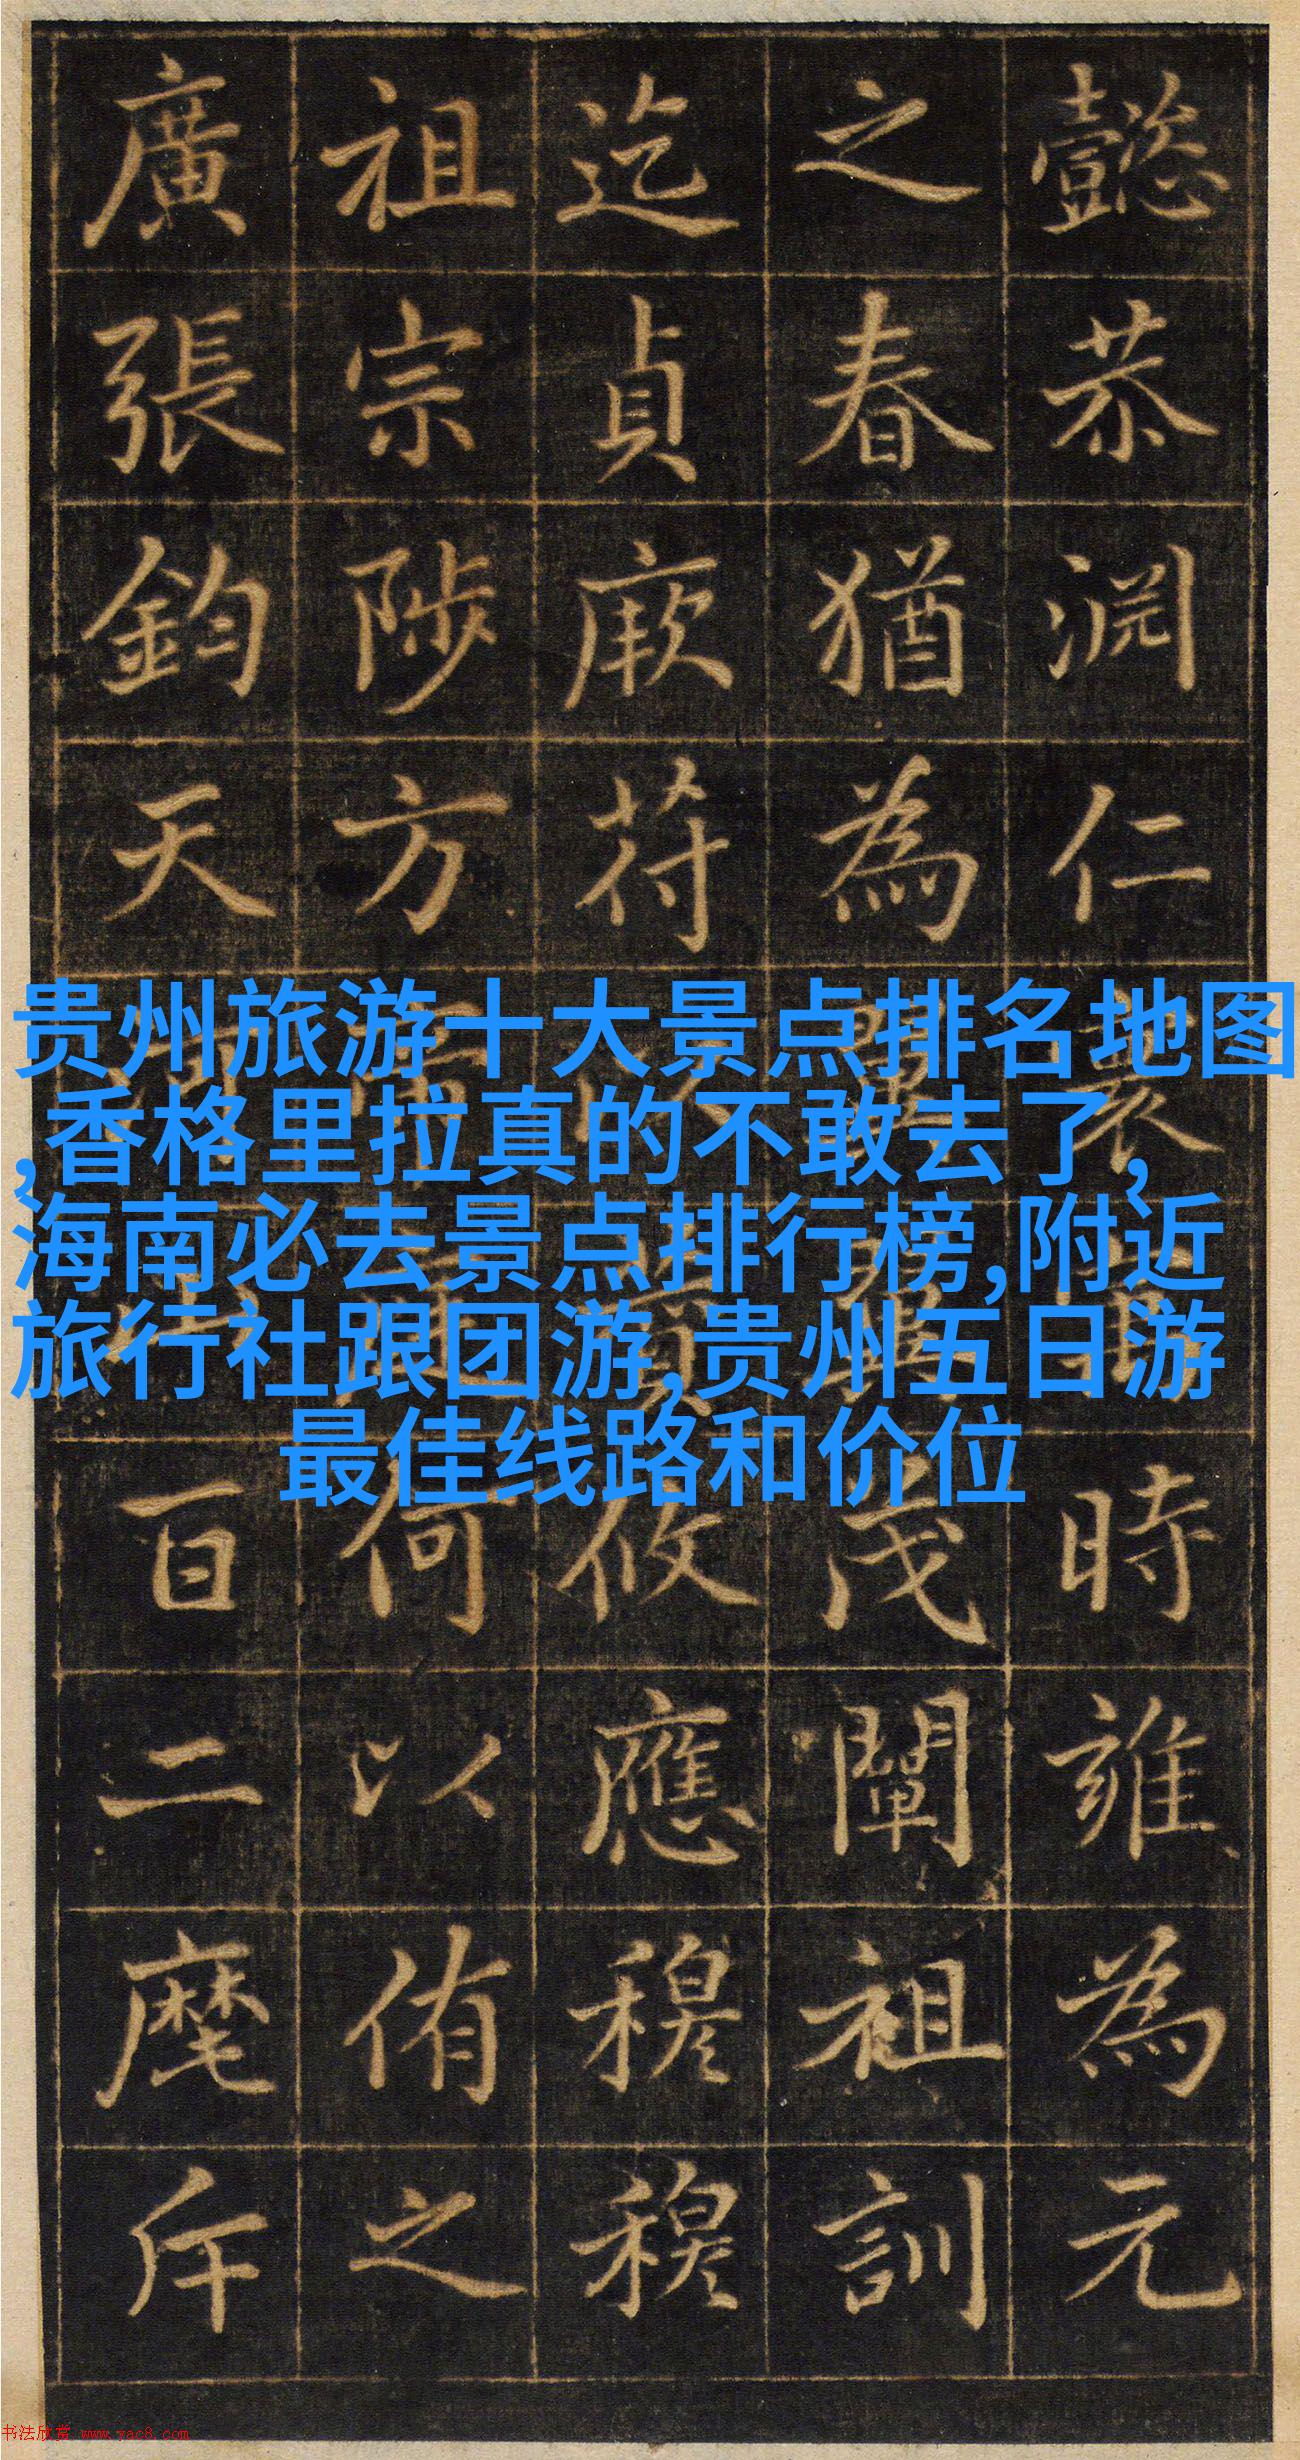 懿恭淵仁時雍為元
之春猶為茂闡祖訓
迄貞厥苻攸應穆穆
祖宗陟方何以侑之
廣張鈞天百二麾斥
贵州旅游十大景点排名地图
,香格里拉真的不敢去了,
海南必去景点排行榜,附近
旅行社跟团游,贵州五日游
最佳线路和价位
书法欣赏 www.yac8.com